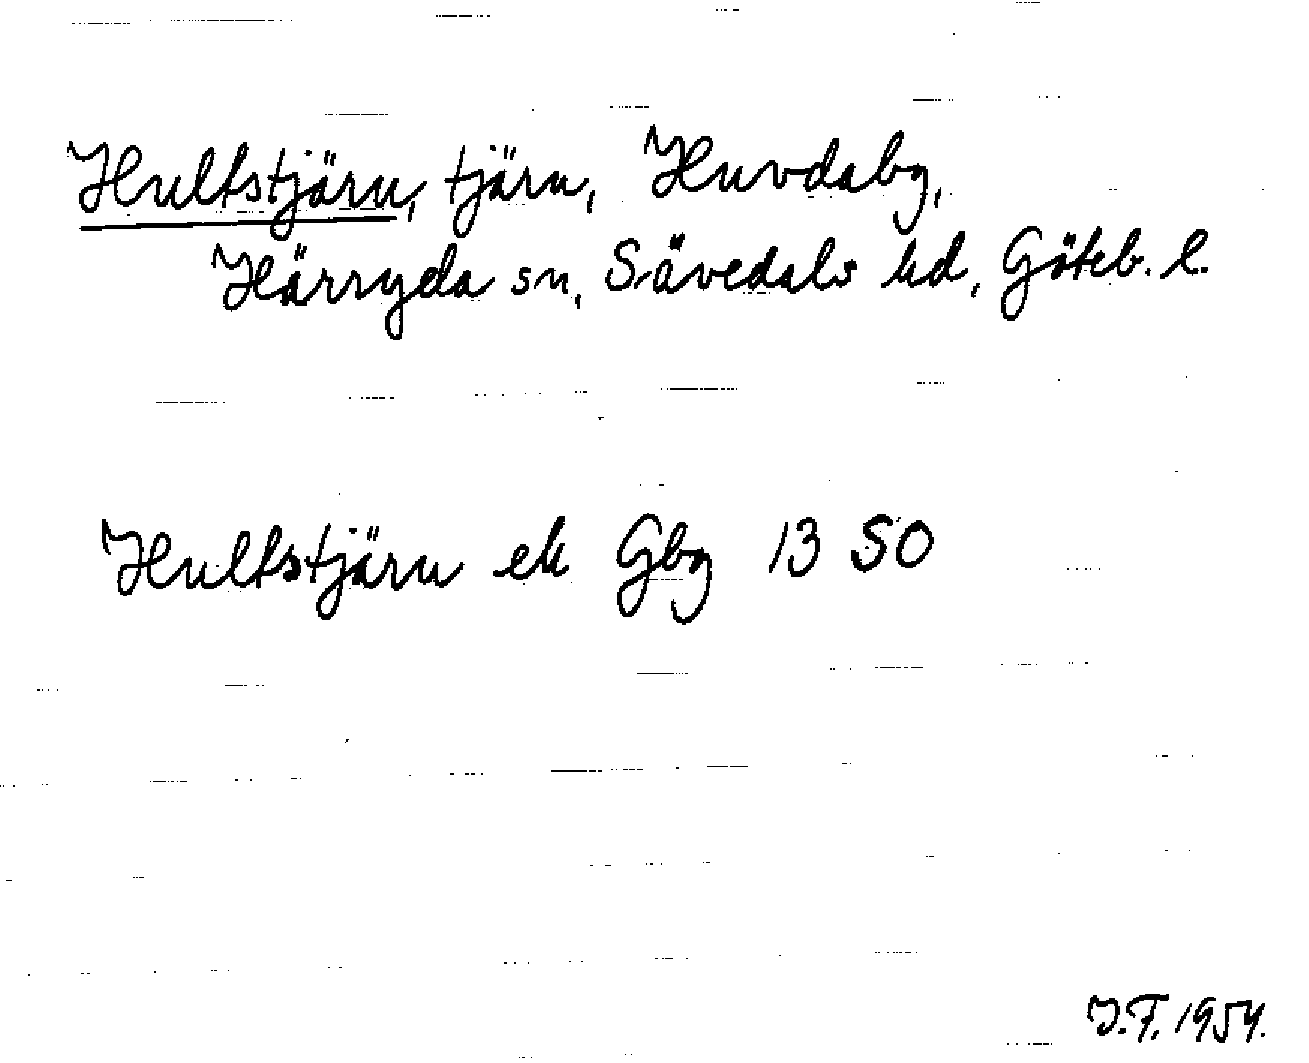 Hultstjärn, tjärn, Huvdabg,
Härryda sn, Sävedals hd, Göteb. l.
Hultstjärn ek Gbg 13 SO
J.F. 1954.